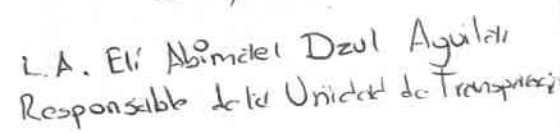 L.A. Eli Abimelel Dzul Aguilar
Responsable de la Unidad de Transparencia